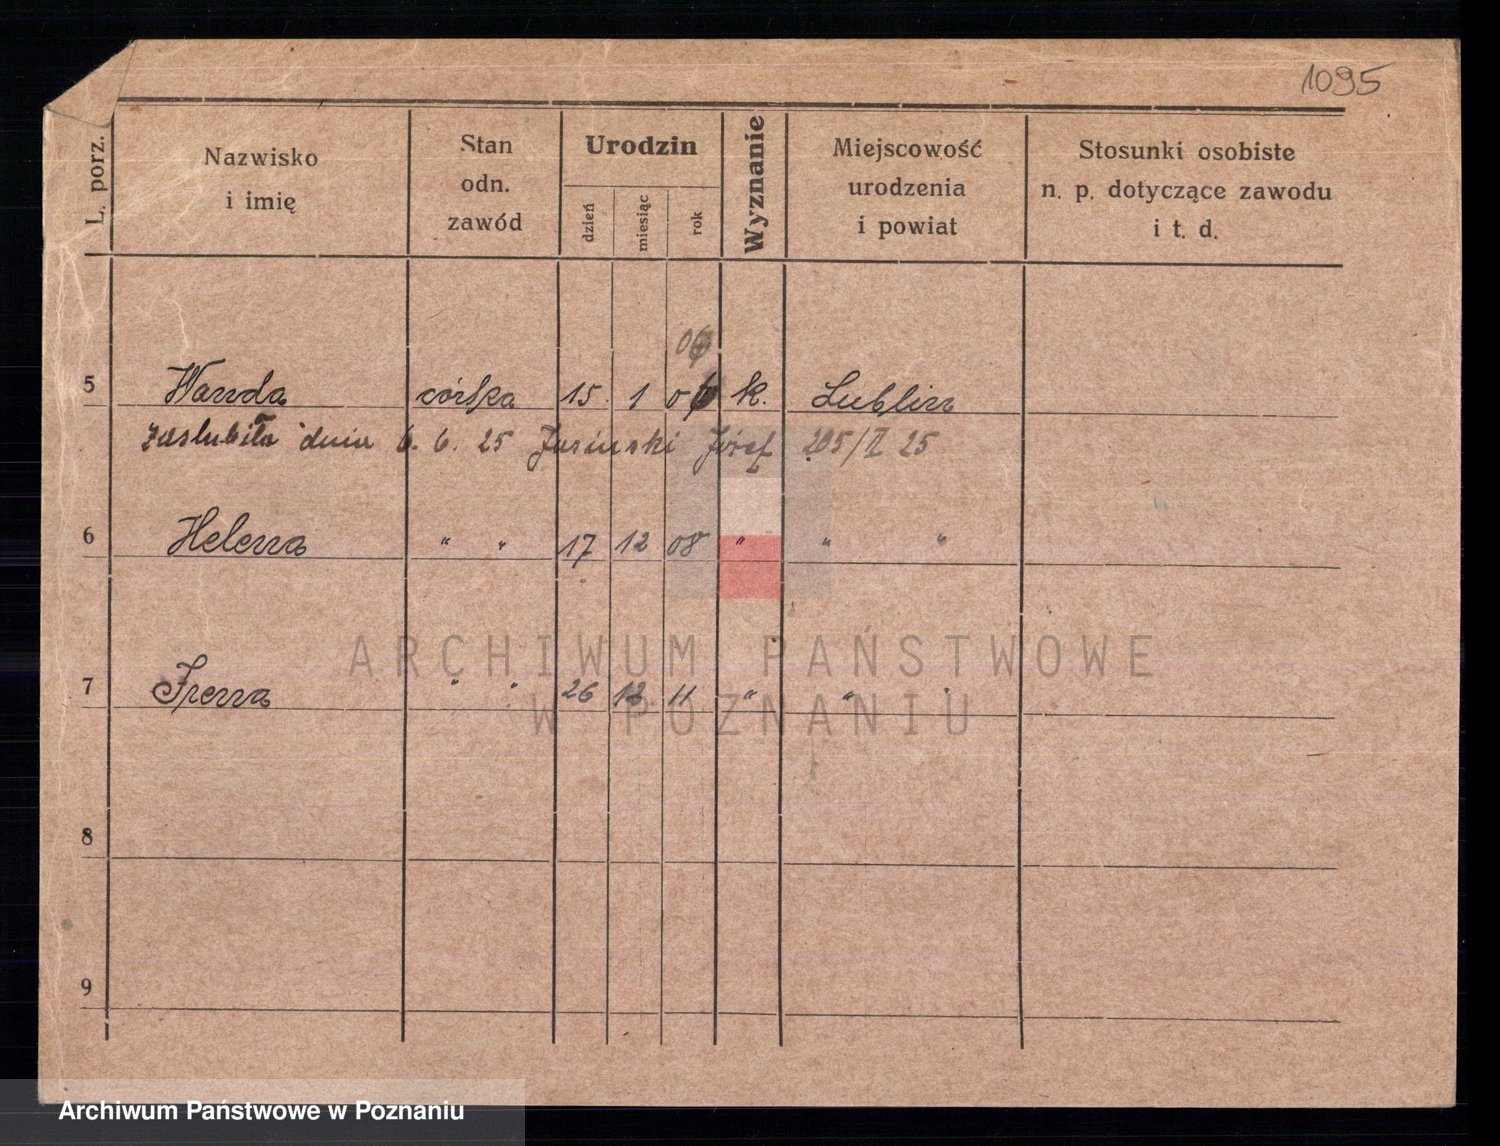 1095
L. porz.
Nazwisko
i imię
Stan
odn.
zawód
Urodzin
dzień
miesiąc
rok
Wyznanie
Miejscowość
urodzenia
i powiat
Stosunki osobiste
n. p. dotyczące zawodu
i t. d.
5 Wanda córka 15. 1 k. Lublin
zaślubiła dnia 6. 6. 25 Józef 205/II 25
6 Helena " " 17 12 08 " " "
7 Irena " " 26 12 11 " " "
8
9
ARCHIWUM PAŃSTWOWE
W POZNANIU
Archiwum Państwowe w Poznaniu